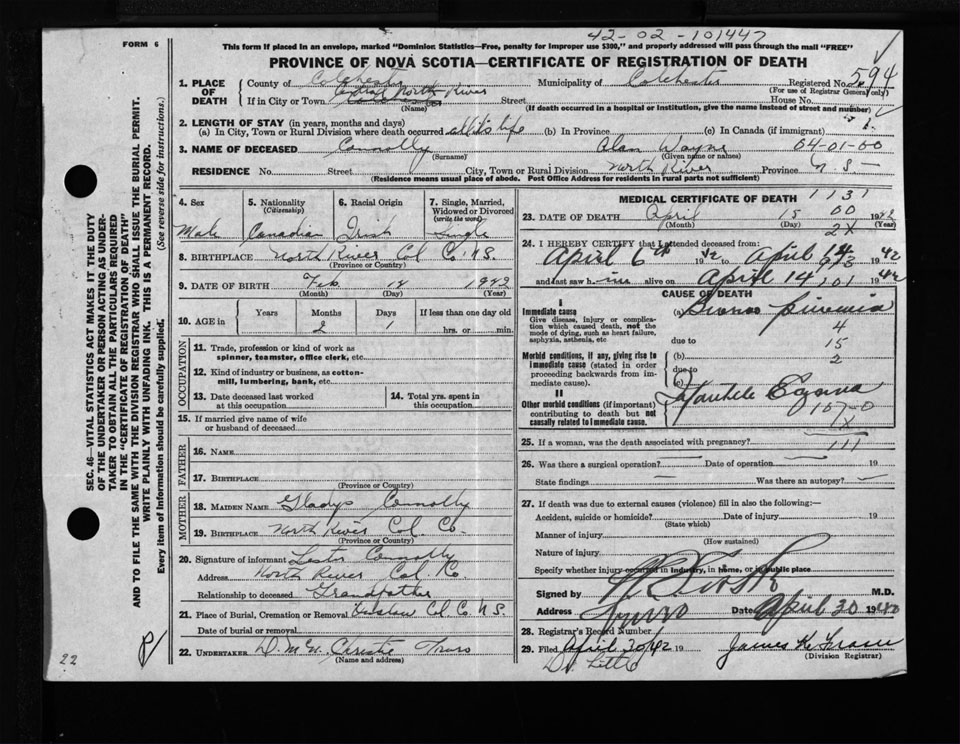 42-02-101447
FORM 6
This form if placed in an envelope, marked "Dominion Statistics—Free, penalty for improper use $300," and properly addressed will pass through the mail "FREE"
PROVINCE OF NOVA SCOTIA—CERTIFICATE OF REGISTRATION OF DEATH
1. PLACE OF DEATH
County of Colchester Municipality of Colchester Registered No. 594
(For use of Registrar General only)
If in City or Town North River Street House No.
(Name) (If death occurred in a hospital or institution, give the name instead of street and number)
2. LENGTH OF STAY (in years, months and days)
(a) In City, Town or Rural Division where death occurred all its life (b) In Province (c) In Canada (if immigrant)
3. NAME OF DECEASED Connolly Alan Wayne 04-01-00
(Surname) (Given name or names)
RESIDENCE No. Street City, Town or Rural Division North River Province N S
(Residence means usual place of abode. Post Office Address for residents in rural parts not sufficient)
4. Sex Male
5. Nationality (Citizenship) Canadian
6. Racial Origin Irish
7. Single, Married, Widowed or Divorced (write the word) Single
8. BIRTHPLACE North River Col Co N.S.
(Province or Country)
9. DATE OF BIRTH Feb. 1942
(Month) (Day) (Year)
10. AGE in Years Months 2 Days 1 If less than one day old hrs. or min.
OCCUPATION
11. Trade, profession or kind of work as spinner, teamster, office clerk, etc.
12. Kind of industry or business, as cotton-mill, lumbering, bank, etc.
13. Date deceased last worked at this occupation
14. Total yrs. spent in this occupation
15. If married give name of wife or husband of deceased
FATHER
16. NAME
17. BIRTHPLACE
(Province or Country)
MOTHER
18. MAIDEN NAME Gladys Connolly
19. BIRTHPLACE North River Col. Co.
(Province or Country)
20. Signature of informant Lester Connolly
Address North River Col Co.
Relationship to deceased Grandfather
21. Place of Burial, Cremation or Removal Onslow Col. Co. N.S.
Date of burial or removal
22. UNDERTAKER Christie Truro
(Name and address)
MEDICAL CERTIFICATE OF DEATH 1131
23. DATE OF DEATH April 15 1942
(Month) (Day) (Year)
00
2X
24. I HEREBY CERTIFY that I attended deceased from:
April 6th 1942 to April 14 1942
and last saw h im alive on April 14 1942
CAUSE OF DEATH
I
Immediate cause
Give disease, injury or complication which caused death, not the mode of dying, such as heart failure, asphyxia, asthenia, etc
(a)
4
due to
15
Morbid conditions, if any, giving rise to immediate cause (stated in order proceeding backwards from immediate cause).
(b)
2
due to
(c)
II
Other morbid conditions (if important) contributing to death but not causally related to immediate cause.
1X
25. If a woman, was the death associated with pregnancy? 111
26. Was there a surgical operation? Date of operation 19
State findings Was there an autopsy?
27. If death was due to external causes (violence) fill in also the following:—
Accident, suicide or homicide? Date of injury 19
(State which)
Manner of injury
(How sustained)
Nature of injury
Specify whether injury occurred in industry, in home, or in public place
Signed by M.D.
Address Truro Date April 30 1942
28. Registrar's Record Number
29. Filed April 30/42 19 James
(Division Registrar)
Dr. Little
SEC. 46—VITAL STATISTICS ACT MAKES IT THE DUTY
OF THE UNDERTAKER OR PERSON ACTING AS UNDER-
TAKER TO OBTAIN ALL THE PARTICULARS REQUIRED
IN THE "CERTIFICATE OF REGISTRATION OF DEATH"
AND TO FILE THE SAME WITH THE DIVISION REGISTRAR WHO SHALL ISSUE THE BURIAL PERMIT.
WRITE PLAINLY WITH UNFADING INK. THIS IS A PERMANENT RECORD.
Every item of Information should be carefully supplied. (See reverse side for instructions.)
22